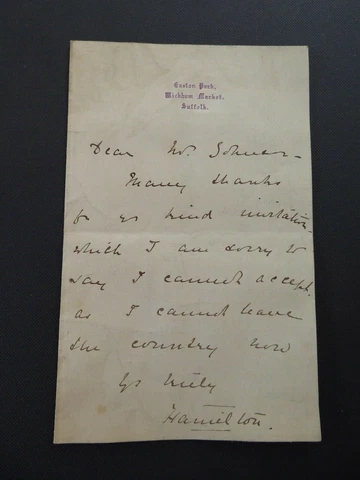 Easton Park,
Wickham Market,
Suffolk.
Dear Mr.
Many thanks
for yr kind invitation -
which I am sorry to
say I cannot accept.
as I cannot leave
the country now
Yrs truly
Hamilton.